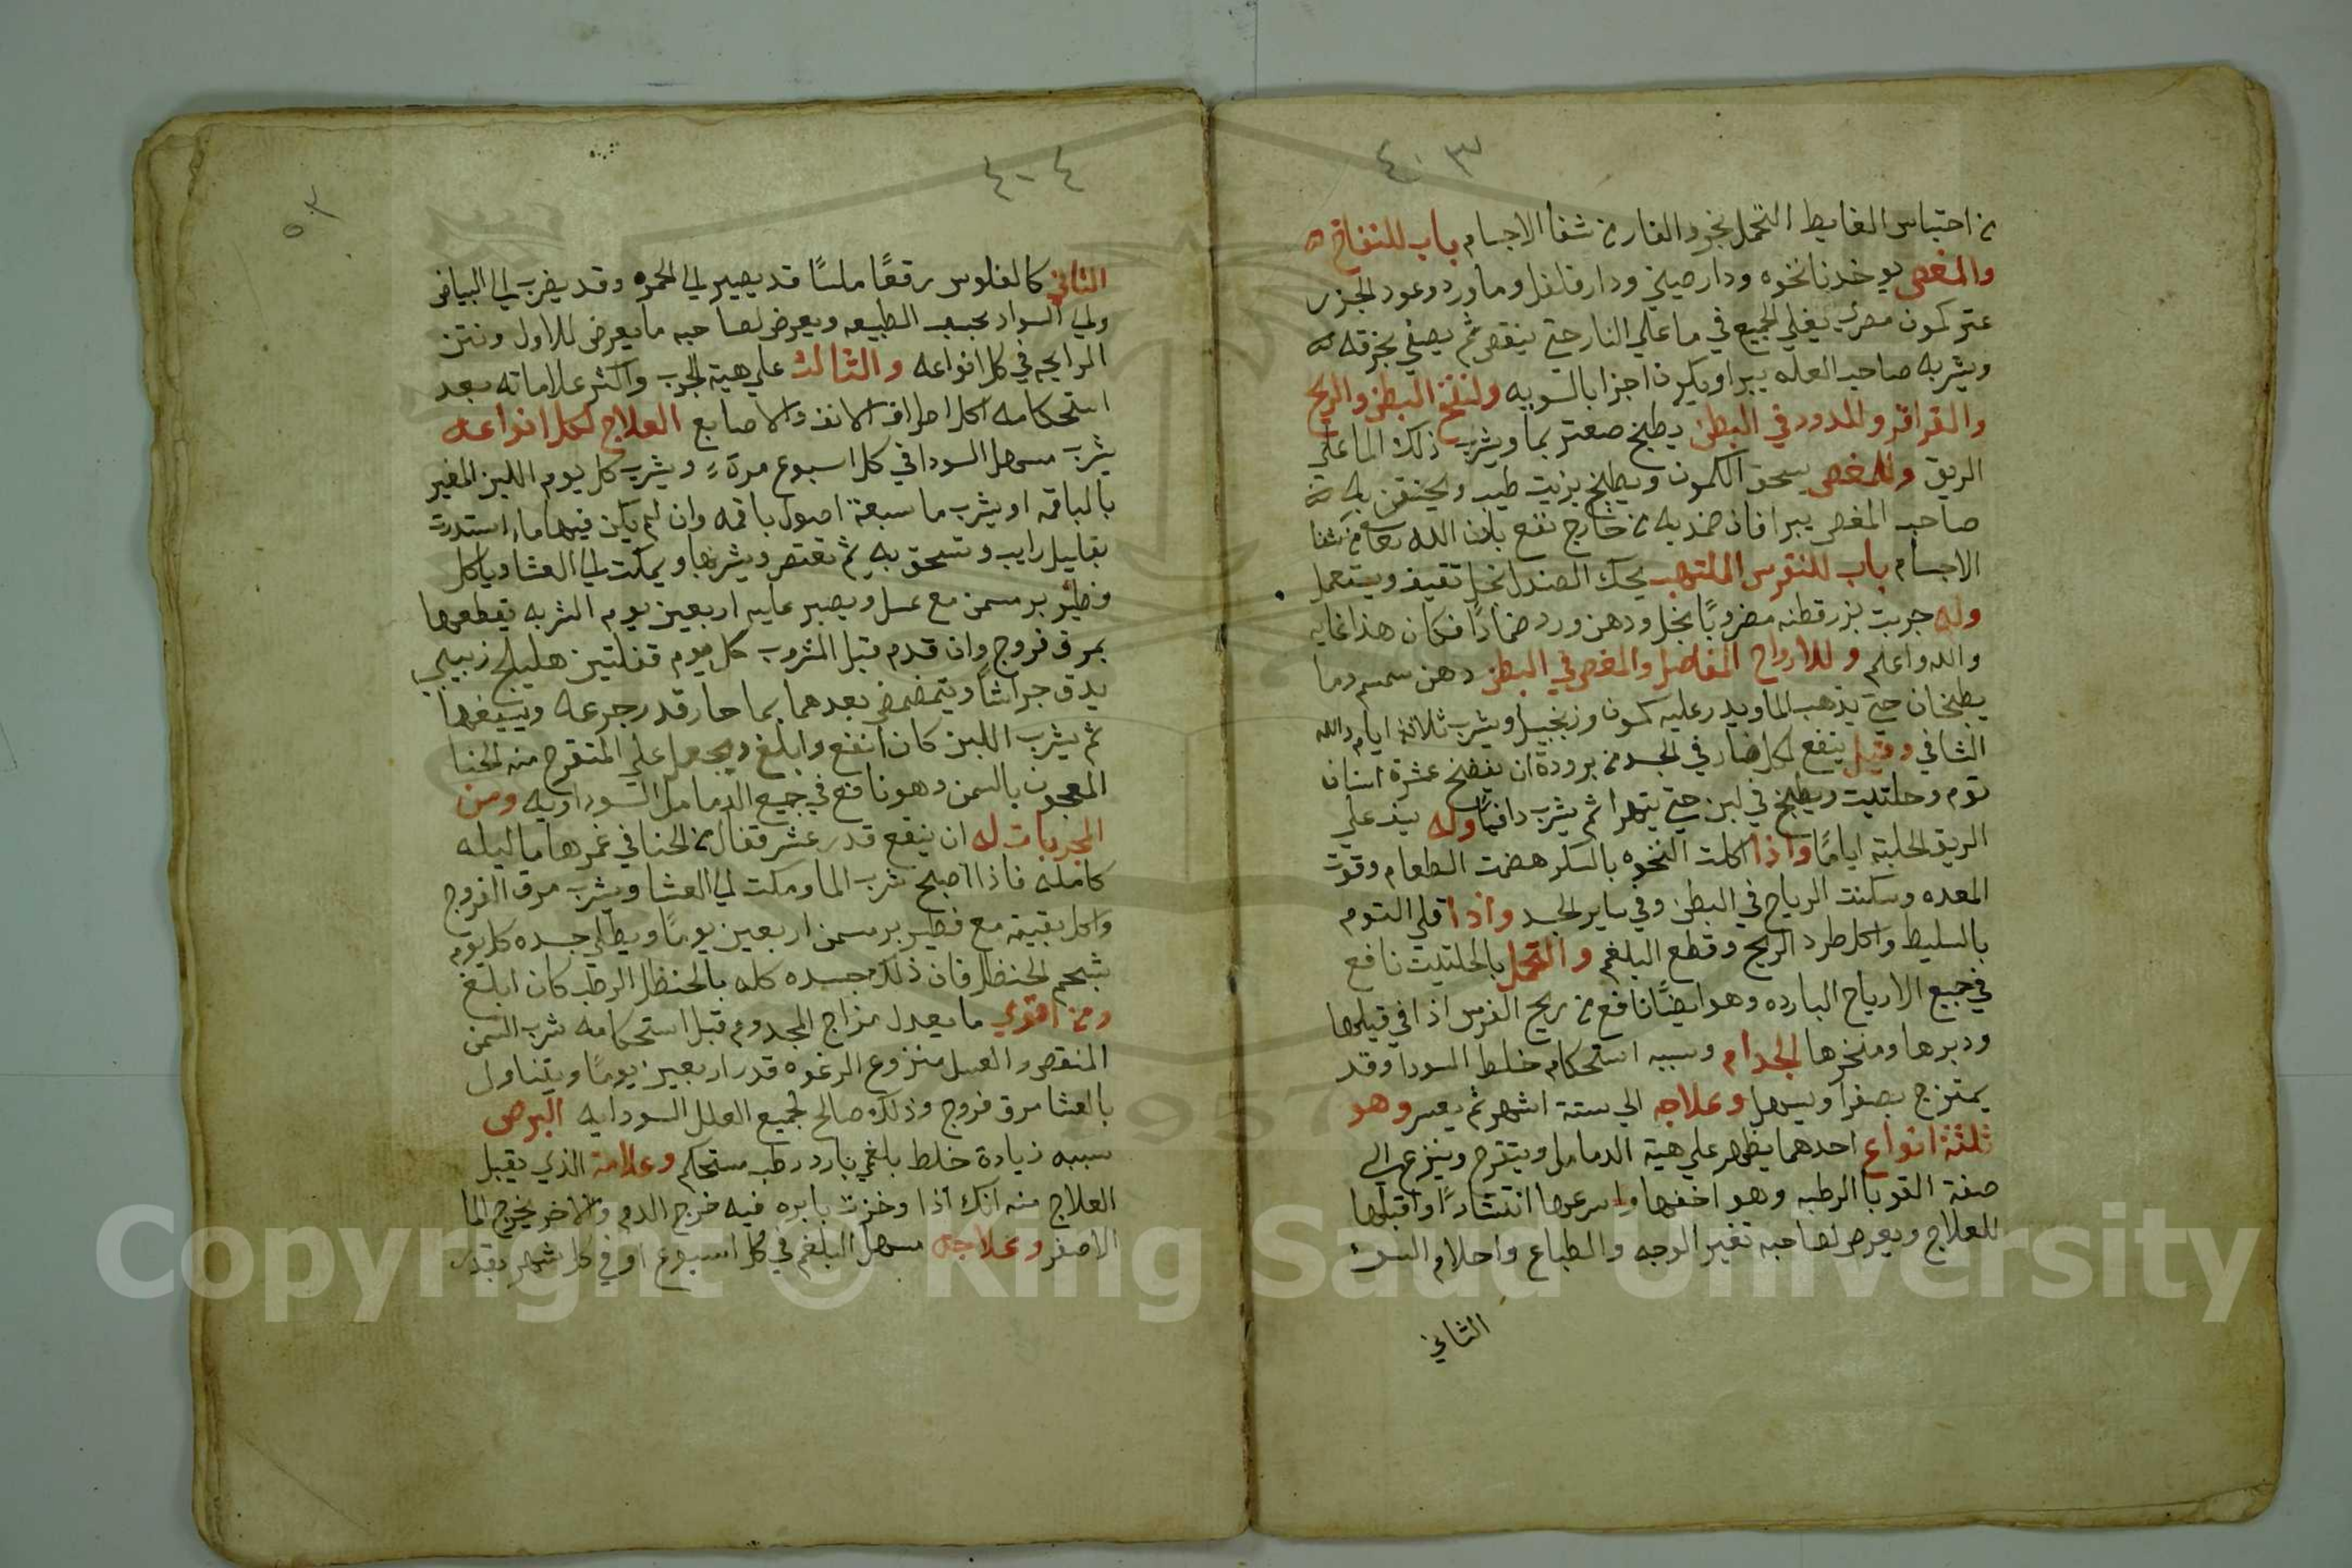 ٤٠٣
من احتباس الغايط التحمل بخرو الفار من شفا الاجسام باب للنفاخ
والمغص يوخذ نانخوه ودارصيني ودارفلفل وماورد وعود الجزر
كمون يغلي الجميع في ما علي النار حتي ينقص ثم يصفي بخرقه
ويشربه صاحب العله يبرا ويكون اجزا بالسويه ولنفخ البطن والريح
والقراقر والدود في البطن يطبخ صعتر بما ويشرب ذلك الما علي
الريق وللمغص يسحق الكمون ويطبخ بزيت طيب ويحتقن به
صاحب المغص يبرا فان ضمد به من خارج نفع باذن الله تعالي من شفا
الاجسام باب للنقرس الملتهب يحك الصندل بخل ثقيف ويستعمل
وله جربت بزرقطنه مضروبًا بخل ودهن ورد ضمادًا فكان هذا غايه
والله اعلم وللارواح المفاصل والمغص في البطن دهن سمسم وما
يطبخان حتي يذهب الما ويدر عليه كمون وزنجبيل ويشرب ثلاثة ايام والله
الشافي وقيل ينفع لكل ضار في الجسد من برودة ان يفضخ عشرة اسنان
ثوم وحلتيت ويطبخ في لبن حتي يتهرا ثم يشرب دافيًا وله علي
الريق الحلبة ايامًا واذا اكلت النخوه بالسكر هضمت الطعام وقوت
المعده وسكنت الرياح في البطن وفي ساير الجسد واذا قلي الثوم
بالسليط واكل طرد الريح وقطع البلغم والتحمل بالحلتيت نافع
في جميع الارياح البارده وهو ايضًا نافع من ريح الفرس اذا في قبلها
ودبرها ومنخرها الجدام وسببه استحكام خلط السودا وقد
يمتزج بصفرا ويسهل وعلاجه الي ستة اشهر ثم يعسر وهو
ثلثة انواع احدهما يظهر علي هية الدمامل ويتقرح وينزع الي
صفة القوبا الرطبه وهو اخفها واسرعها انتشارًا واقبلها
للعلاج ويعرض لصاحبه تغير الوجه والطباع واحلام السوء
الثاني
٤٠٤
٥٣
الثاني كالفلوس رقعًا ملسًا قد يصير لي الحمره وقد يضرب لي البياض
ولي السواد بحسب الطبيعه ويعرض لصاحبه ما يعرض للاول ونتن
الرايحه في كل انواعه والثالث علي هية الجرب واكثر علاماته بعد
استحكامه اكل اطراف الانف والاصابع العلاج لكل انواعه
يشرب مسهل السودا في كل اسبوع مرة ويشرب كل يوم اللبن المغير
بالباقه او يشرب ما سبعة اصول باقه وان لم يكن فيها ما استدرت
بقليل رايب وتسحق به ثم تعتصر ويشربها ويمكث لي العشا وياكل
فطير بر مسمن مع عسل ويصبر عليه اربعين يوم الشربه يقطعها
بمرق فروج وان قدم قبل المشروب كل يوم قفلتين هليلج زبيبي
يدق جراشًا ويتمضمض بعدهما بما حار قدر جرعه ويسيغها
ثم يشرب اللبن كان انفع وابلغ ويجعل علي المتقرح منه الحنا
المعجون بالسمن وهو نافع في جميع الدمامل السوداويه ومن
المجربات له ان ينقع قدر عشر قفال من الحنا في غمرها ما ليله
كامله فاذا اصبح شرب الما ومكث لي العشا ويشرب مرق الفروج
واكل بقيته مع فطير بر مسمن اربعين يومًا ويطلي جسده كل يوم
بشحم الحنظل فان ذلك جسده كله بالحنظل الرطب كان ابلغ
ومن اقوي ما يعدل مزاج المجدوم قبل استحكامه شرب السمن
المنقص والعسل منزوع الرغوه قدر اربعين يومًا ويتناول
بالعشا مرق فروج وذلك صالح لجميع العلل السودايه البرص
سببه زيادة خلط بلغمي بارد رطب مستحكم وعلامة الذي يقبل
العلاج منه انك اذا وخزت بابره فيه خرج الدم والاخر يخرج الما
الاصفر وعلاجه مسهل البلغم في كل اسبوع او في كل شهر بقدر
Copyright © King Saud University
1957